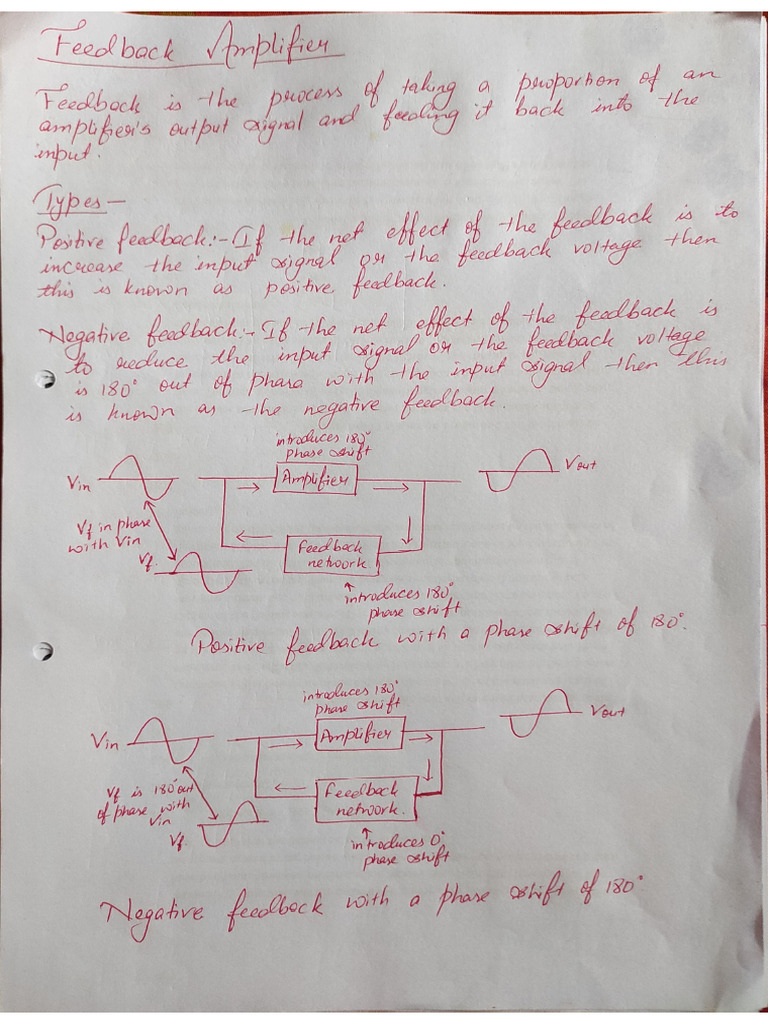 Feedback Amplifier
Feedback is the process of taking a proportion of an
amplifier's output signal and feeding it back into the
input.
Types -
Positive feedback:- If the net effect of the feedback is to
increase the input signal or the feedback voltage then
this is known as positive feedback.
Negative feedback:- If the net effect of the feedback is
to reduce the input signal or the feedback voltage
is 180° out of phase with the input signal then this
is known as the negative feedback.
introduces 180°
phase shift
Vin
Amplifier
Vout
Vf in phase
with Vin
Vf
Feedback
network
introduces 180°
phase shift
Positive feedback with a phase shift of 180°.
introduces 180°
phase shift
Vin
Amplifier
Vout
Vf is 180° out
of phase with
Vin
Vf
Feedback
network.
introduces 0°
phase shift
Negative feedback with a phase shift of 180°